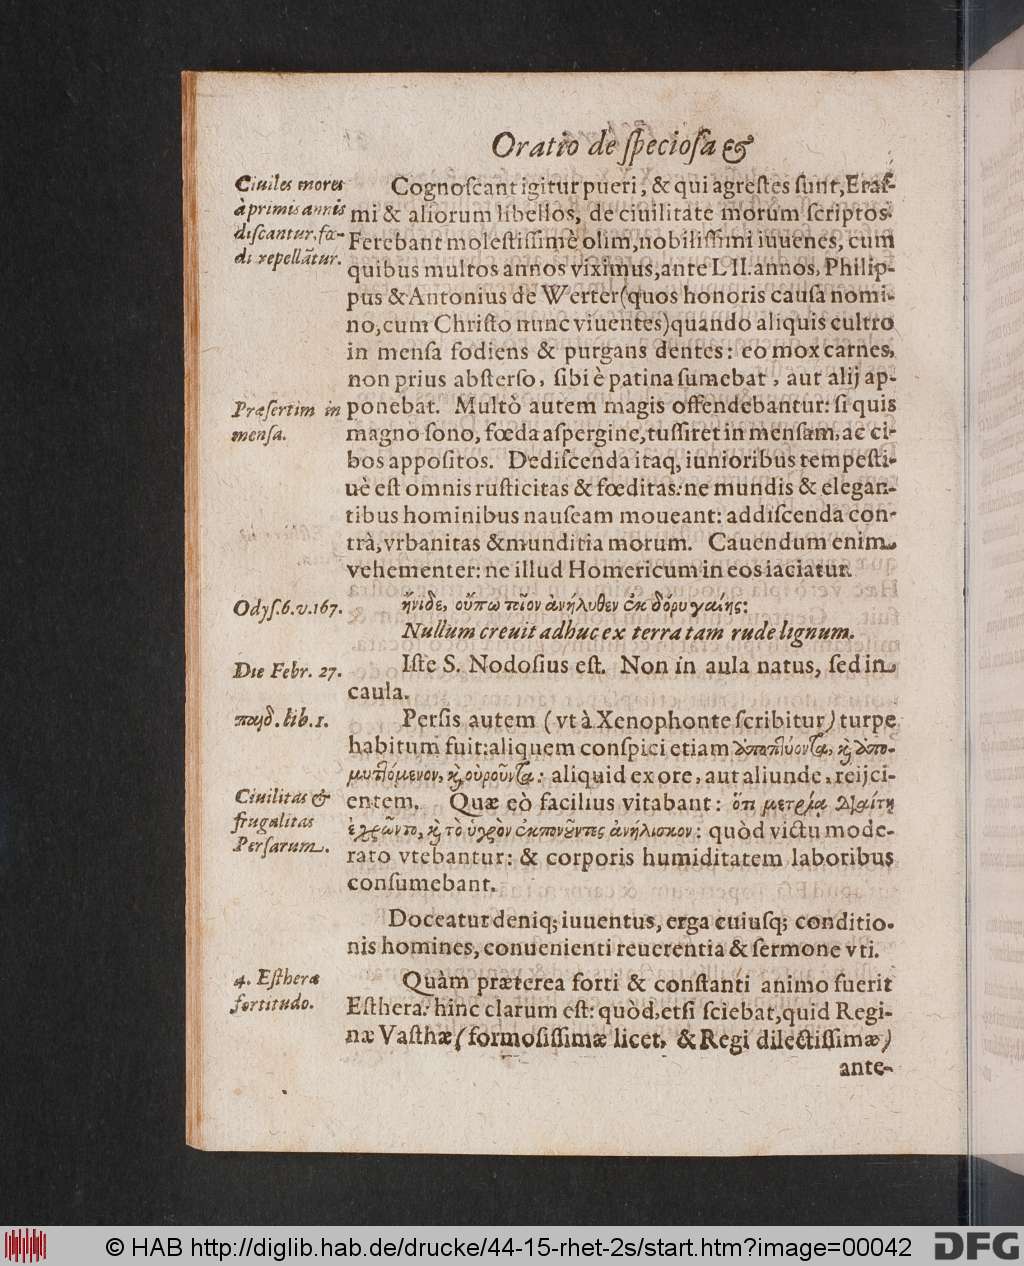 Oratio de ſpecioſa &
Ciuiles mores
à primis annis
diſcantur, fœ-
di repellātur.
Cognoſcant igitur pueri, & qui agreſtes ſunt, Eraſ-
mi & aliorum libellos, de ciuilitate morum ſcriptos.
Ferebant moleſtiſſimè olim, nobiliſſimi iuuenes, cum
quibus multos annos viximus, ante LII. annos, Philip-
pus & Antonius de Werter (quos honoris cauſa nomi-
no, cum Chriſto nunc viuentes) quando aliquis cultro
in menſa fodiens & purgans dentes: eo mox carnes,
non prius abſterſo, ſibi è patina ſumebat, aut alij ap-
Præſertim in
menſa.
ponebat. Multò autem magis offendebantur: ſi quis
magno ſono, fœda aſpergine, tuſſiret in menſam, ac ci-
bos appoſitos. Dediſcenda itaq, iunioribus tempeſti-
uè eſt omnis ruſticitas & fœditas: ne mundis & elegan-
tibus hominibus nauſeam moueant: addiſcenda con-
trà, vrbanitas & munditia morum. Cauendum enim
vehementer: ne illud Homericum in eos iaciatur.
Odyſ. 6. v. 167.
ἤνιδε, οὔπω τεῖον ἀνήλυθεν ἐκ δόρυ γαίης:
Nullum creuit adhuc ex terra tam rude lignum.
Die Febr. 27.
Iſte S. Nodoſius eſt. Non in aula natus, ſed in
caula.
παιδ. lib. 1.
Perſis autem (vt à Xenophonte ſcribitur) turpe
habitum fuit: aliquem conſpici etiam ἀποπτύοντα, καὶ ἀπο-
μυττόμενον, καὶ οὐροῦντα: aliquid ex ore, aut aliunde, reijci-
Ciuilitas &
frugalitas
Perſarum.
entem. Quæ eò facilius vitabant: ὅτι μετρίᾳ διαίτῃ
ἐχρῶντο, καὶ τὸ ὑγρὸν ἐκπονοῦντες ἀνήλισκον: quòd victu mode-
rato vtebantur: & corporis humiditatem laboribus
conſumebant.
Doceatur deniq; iuuentus, erga cuiuſq; conditio-
nis homines, conuenienti reuerentia & ſermone vti.
4. Eſtheræ
fortitudo.
Quàm præterea forti & conſtanti animo fuerit
Eſthera: hinc clarum eſt: quòd, etſi ſciebat, quid Regi-
næ Vaſthæ (formoſiſſimæ licet, & Regi dilectiſſimæ)
ante-
© HAB http://diglib.hab.de/drucke/44-15-rhet-2s/start.htm?image=00042
DFG